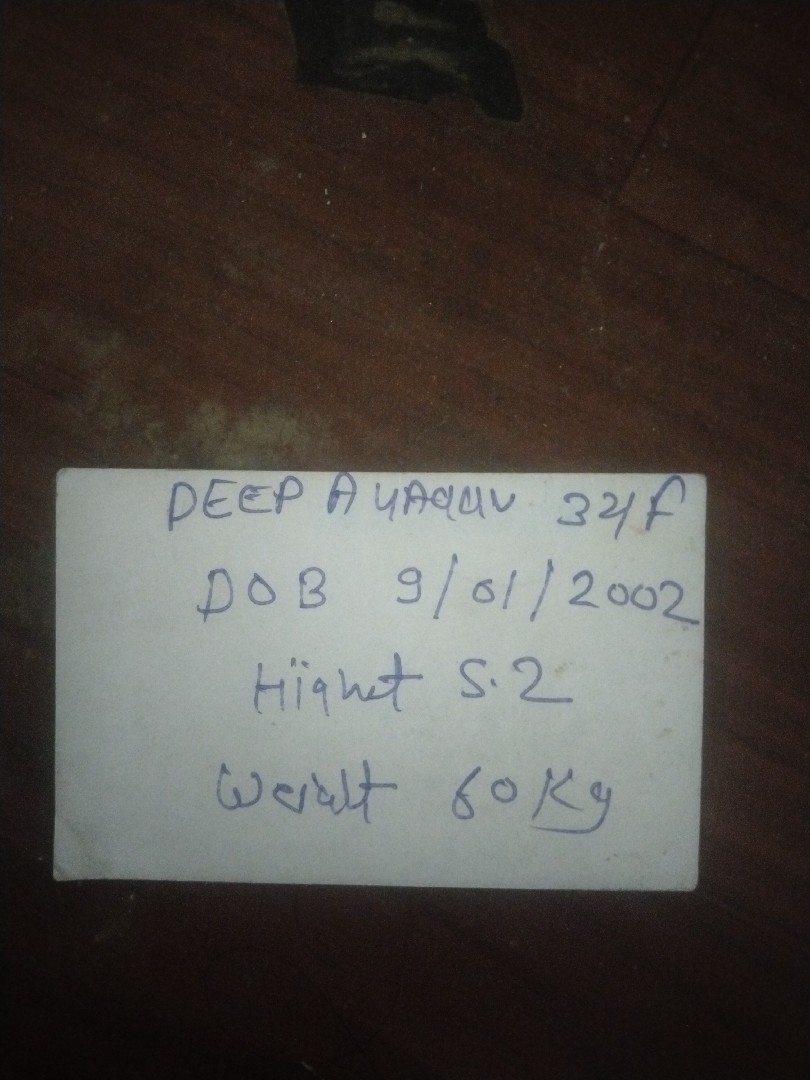 DEEPA YADAV 34F
DOB 9/01/2002
Hight 5.2
Weight 60 Kg